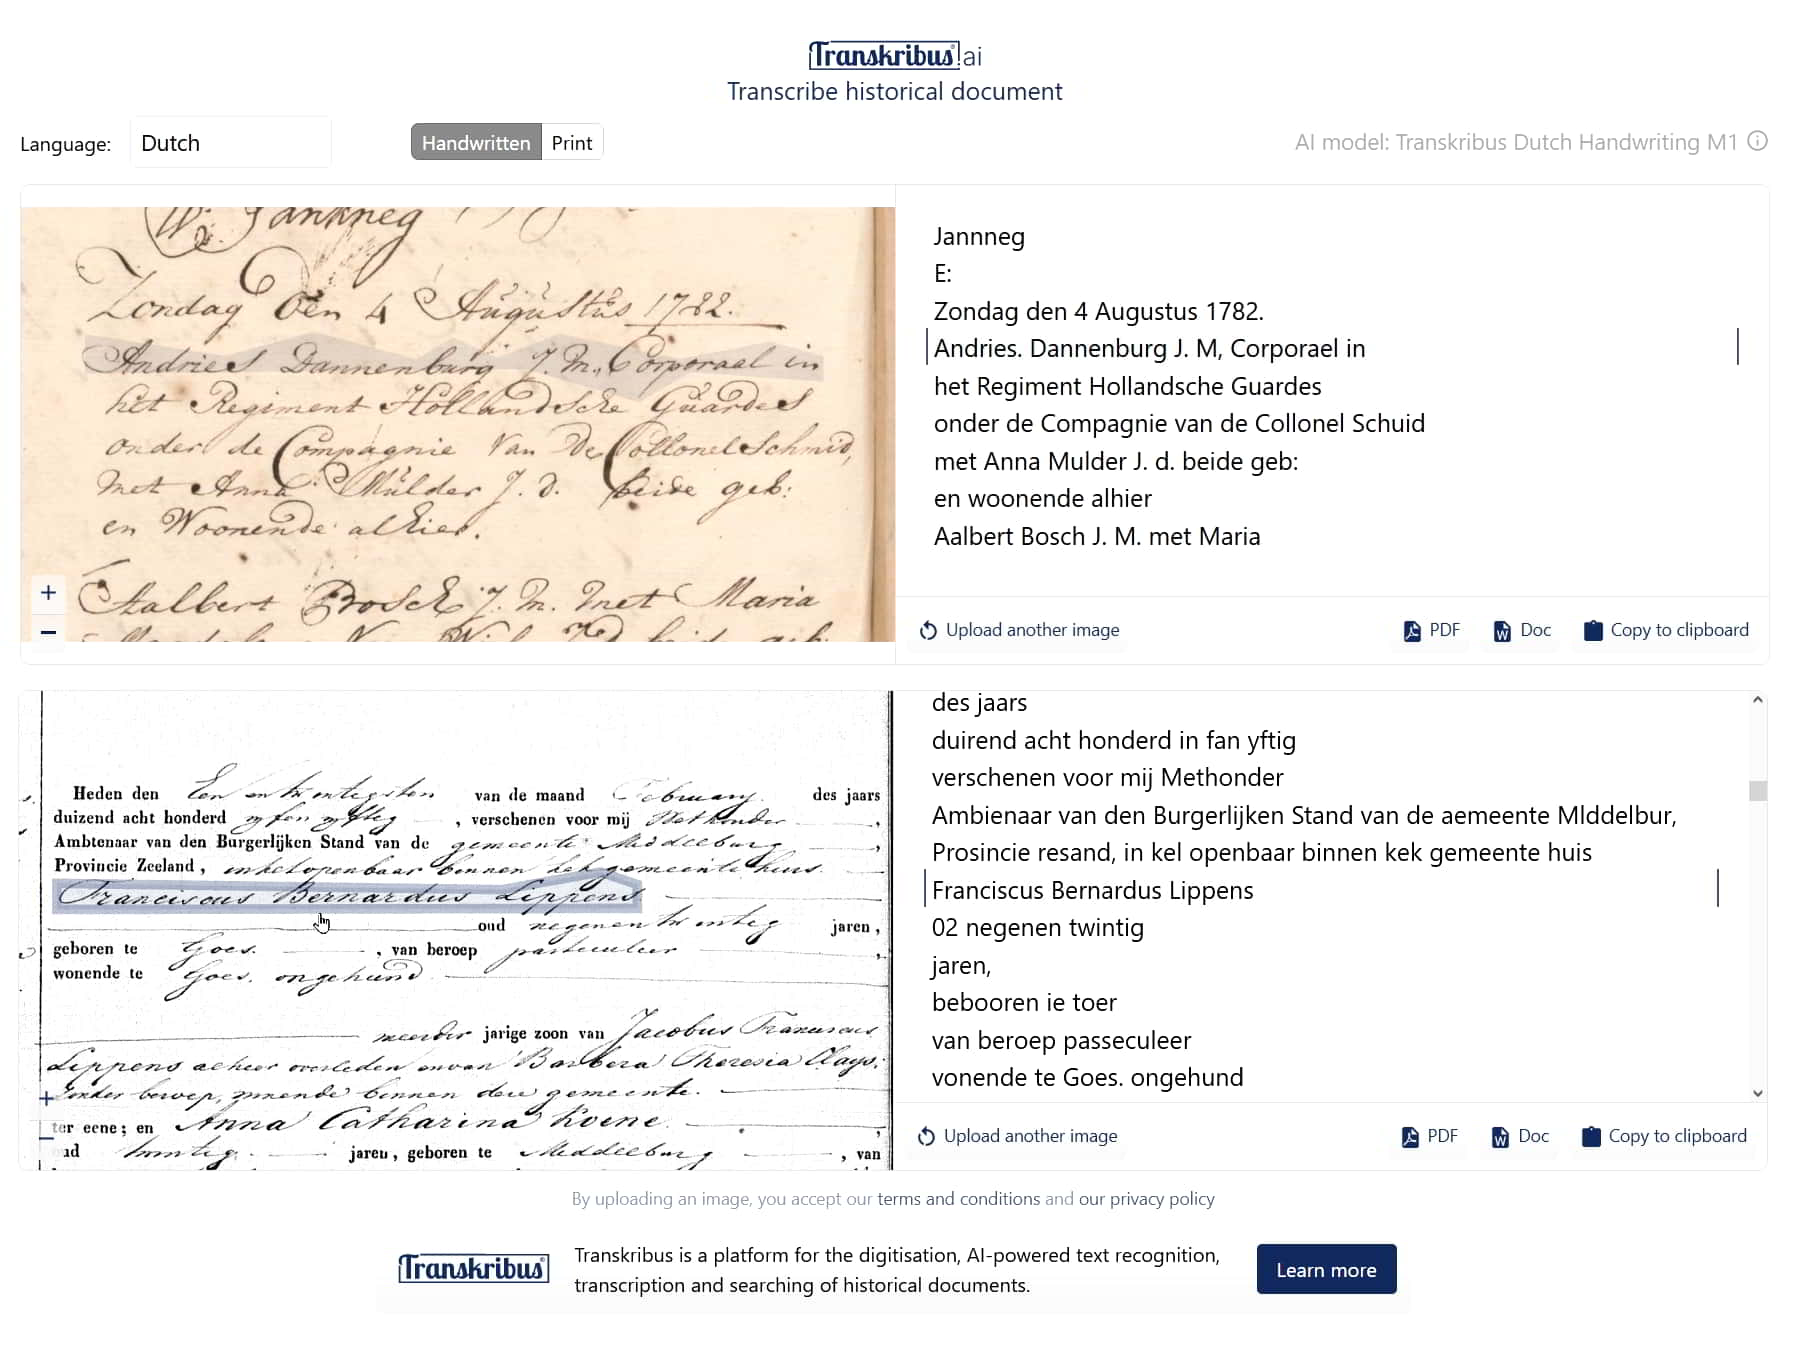 Transkribus.ai
Transcribe historical document
Language: Dutch Handwritten Print AI model: Transkribus Dutch Handwriting M1
Zondag Den 4 Augustus 1782.
Andries Dannenburg J. M., Corporaal in
het Regiment Hollandsche Guardes
onder de Compagnie Van De Collonel Schmid,
met Anna Mulder J. d. beide geb:
en Woonende alhier.
Aalbert Bosch J. M. met Maria
+
−
Jannneg
E:
Zondag den 4 Augustus 1782.
Andries. Dannenburg J. M, Corporael in
het Regiment Hollandsche Guardes
onder de Compagnie van de Collonel Schuid
met Anna Mulder J. d. beide geb:
en woonende alhier
Aalbert Bosch J. M. met Maria
Upload another image PDF Doc Copy to clipboard
Heden den Een en twintigsten van de maand February des jaars
duizend acht honderd vyf en vyftig, verschenen voor mij Wethouder,
Ambtenaar van den Burgerlijken Stand van de gemeente Middelburg,
Provincie Zeeland, in het openbaar binnen het gemeente huis.
Franciscus Bernardus Lippens
oud negenentwintig jaren,
geboren te Goes., van beroep particulier,
wonende te Goes. ongehuwd
meerder jarige zoon van Jacobus Franciscus
Lippens alhier overleden en van Barbera Theresia Clays.
Zonder beroep, wonende binnen deze gemeente.
ter eene; en Anna Catharina Koene
twintig jaren, geboren te Middelburg, van
des jaars
duirend acht honderd in fan yftig
verschenen voor mij Methonder
Ambienaar van den Burgerlijken Stand van de aemeente MIddelbur,
Prosincie resand, in kel openbaar binnen kek gemeente huis
Franciscus Bernardus Lippens
02 negenen twintig
jaren,
bebooren ie toer
van beroep passeculeer
vonende te Goes. ongehund
Upload another image PDF Doc Copy to clipboard
By uploading an image, you accept our terms and conditions and our privacy policy
Transkribus
Transkribus is a platform for the digitisation, AI-powered text recognition,
transcription and searching of historical documents.
Learn more